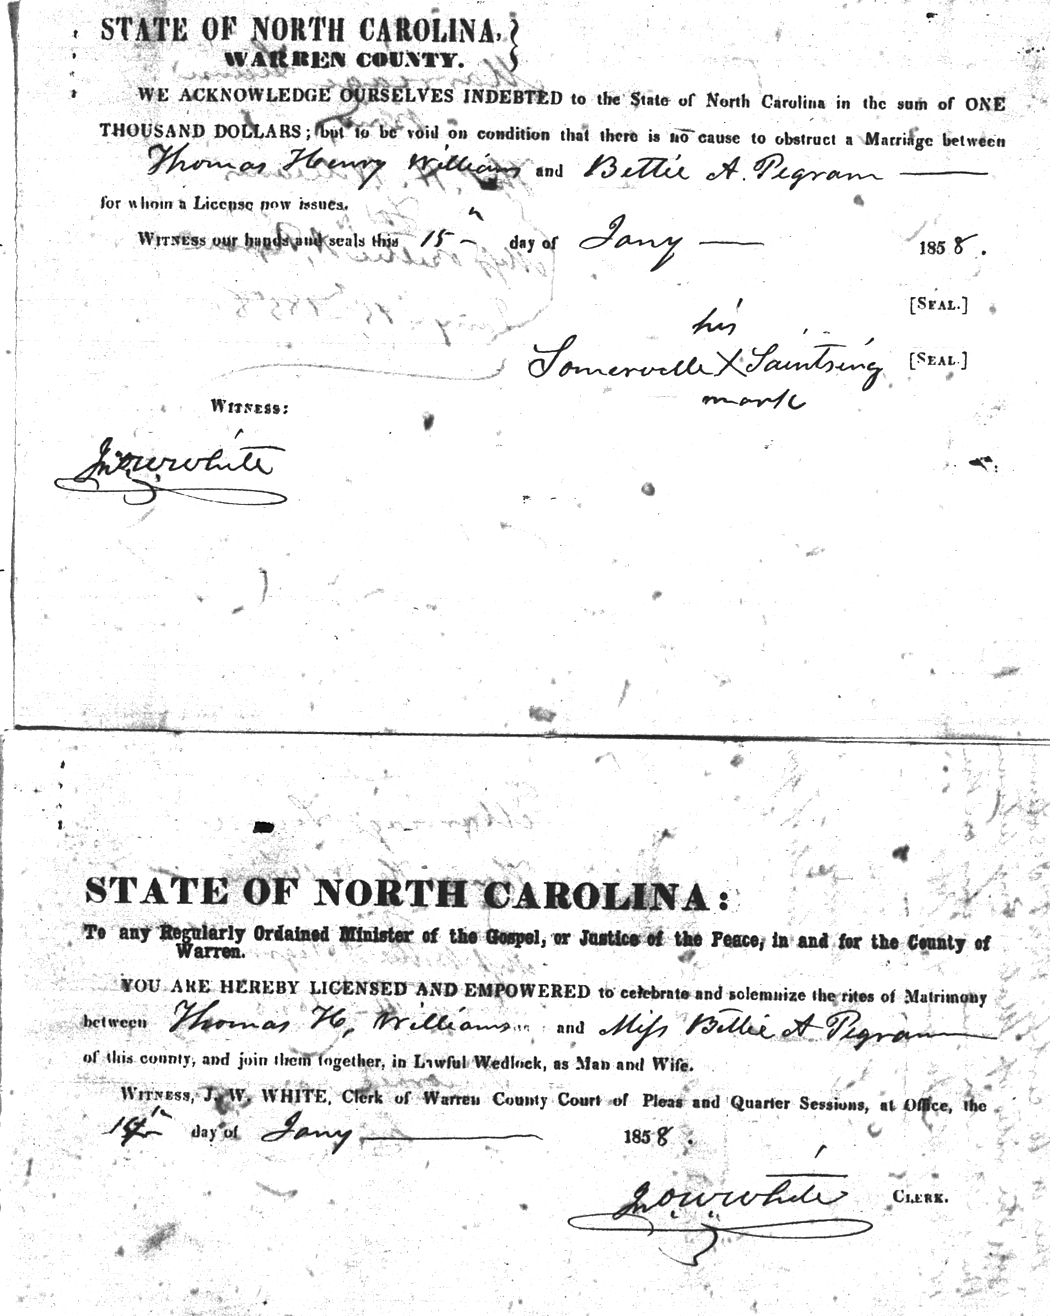 STATE OF NORTH CAROLINA,
WARREN COUNTY.
WE ACKNOWLEDGE OURSELVES INDEBTED to the State of North Carolina in the sum of ONE
THOUSAND DOLLARS; but to be void on condition that there is no cause to obstruct a Marriage between
Thomas Henry Williams and Bettie A. Pegram
for whom a License now issues.
WITNESS our hands and seals this 15 day of Jany 1858.
[SEAL.]
his
Somerville X Saintsing [SEAL.]
mark
WITNESS:
Jno W White
STATE OF NORTH CAROLINA:
To any Regularly Ordained Minister of the Gospel, or Justice of the Peace, in and for the County of
Warren.
YOU ARE HEREBY LICENSED AND EMPOWERED to celebrate and solemnize the rites of Matrimony
between Thomas H. Williams and Miss Bettie A Pegram
of this county, and join them together, in Lawful Wedlock, as Man and Wife.
WITNESS, J. W. WHITE, Clerk of Warren County Court of Pleas and Quarter Sessions, at Office, the
day of Jany 1858.
Jno W White CLERK.